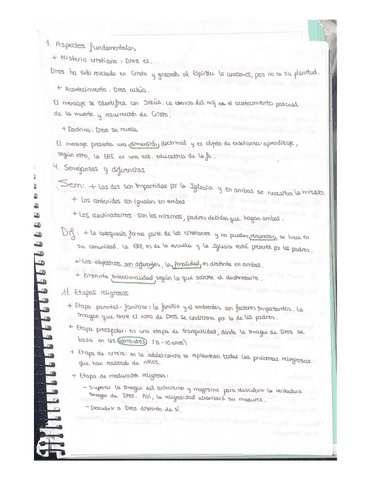 1. Aspectos fundamentales
+ Misterio cristiano: Dios es.
Dios ha sido revelado en Cristo y gracias al Espíritu lo conocemos, pero no en su plenitud.
+ Acontecimiento: Dios actúa.
El mensaje se identifica con Jesús. La esencia del msj es el acontecimiento pascual
de la muerte y resurrección de Cristo.
+ Doctrina: Dios se revela.
El mensaje presenta una dimensión doctrinal y es objeto de enseñanza-aprendizaje,
según esto, la ERE es una act. educativa de la fe.
4. Semejanzas y diferencias
Sem: + Las dos son impartidas por la Iglesia y en ambas se necesita la missio.
+ Los contenidos son iguales en ambas
+ Los destinatarios son los mismos, padres deciden que hagan ambas.
Df: + La catequesis forma parte de los cristianos y no pueden renunciar, se hace en
su comunidad. La ERE es de la escuela y la Iglesia está presente por los padres.
+ Los objetivos son diferentes, la finalidad es distinta en ambas.
+ Distinta intencionalidad según lo que solicite el destinatario.
11. Etapas religiosas
+ Etapa parental-familiar: la familia y el ambiente son factores importantes. La
imagen que tiene el niño de Dios se condiciona por la de los padres.
+ Etapa preescolar: es una etapa de tranquilidad, donde la imagen de Dios se
basa en los (8-10 años)
+ Etapa de crisis: en la adolescencia se replantean todas las prácticas religiosas
que han realizado de niños.
+ Etapa de maduración religiosa:
- Superar la imagen del animismo y magicismo para descubrir la verdadera
imagen de Dios. Así, la religiosidad alcanzará su madurez.
- Descubrir a Dios distinto de sí.